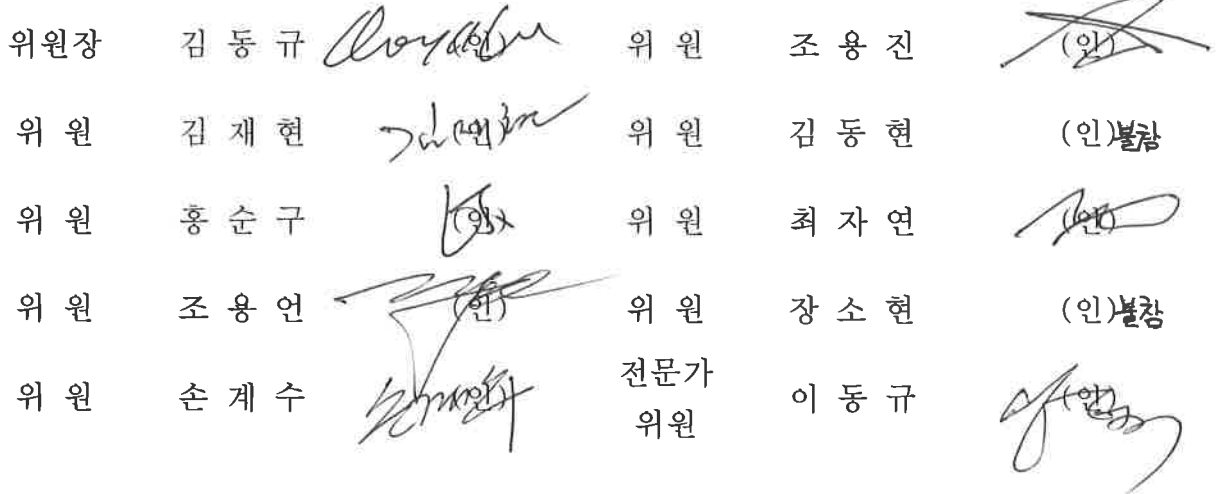 위원장 김 동 규 (인) 위 원 조 용 진 (인)
위 원 김 재 현 (인) 위 원 김 동 현 (인)불참
위 원 홍 순 구 (인) 위 원 최 자 연 (인)
위 원 조 용 언 (인) 위 원 장 소 현 (인)불참
위 원 손 계 수 (인) 전문가 위원 이 동 규 (인)